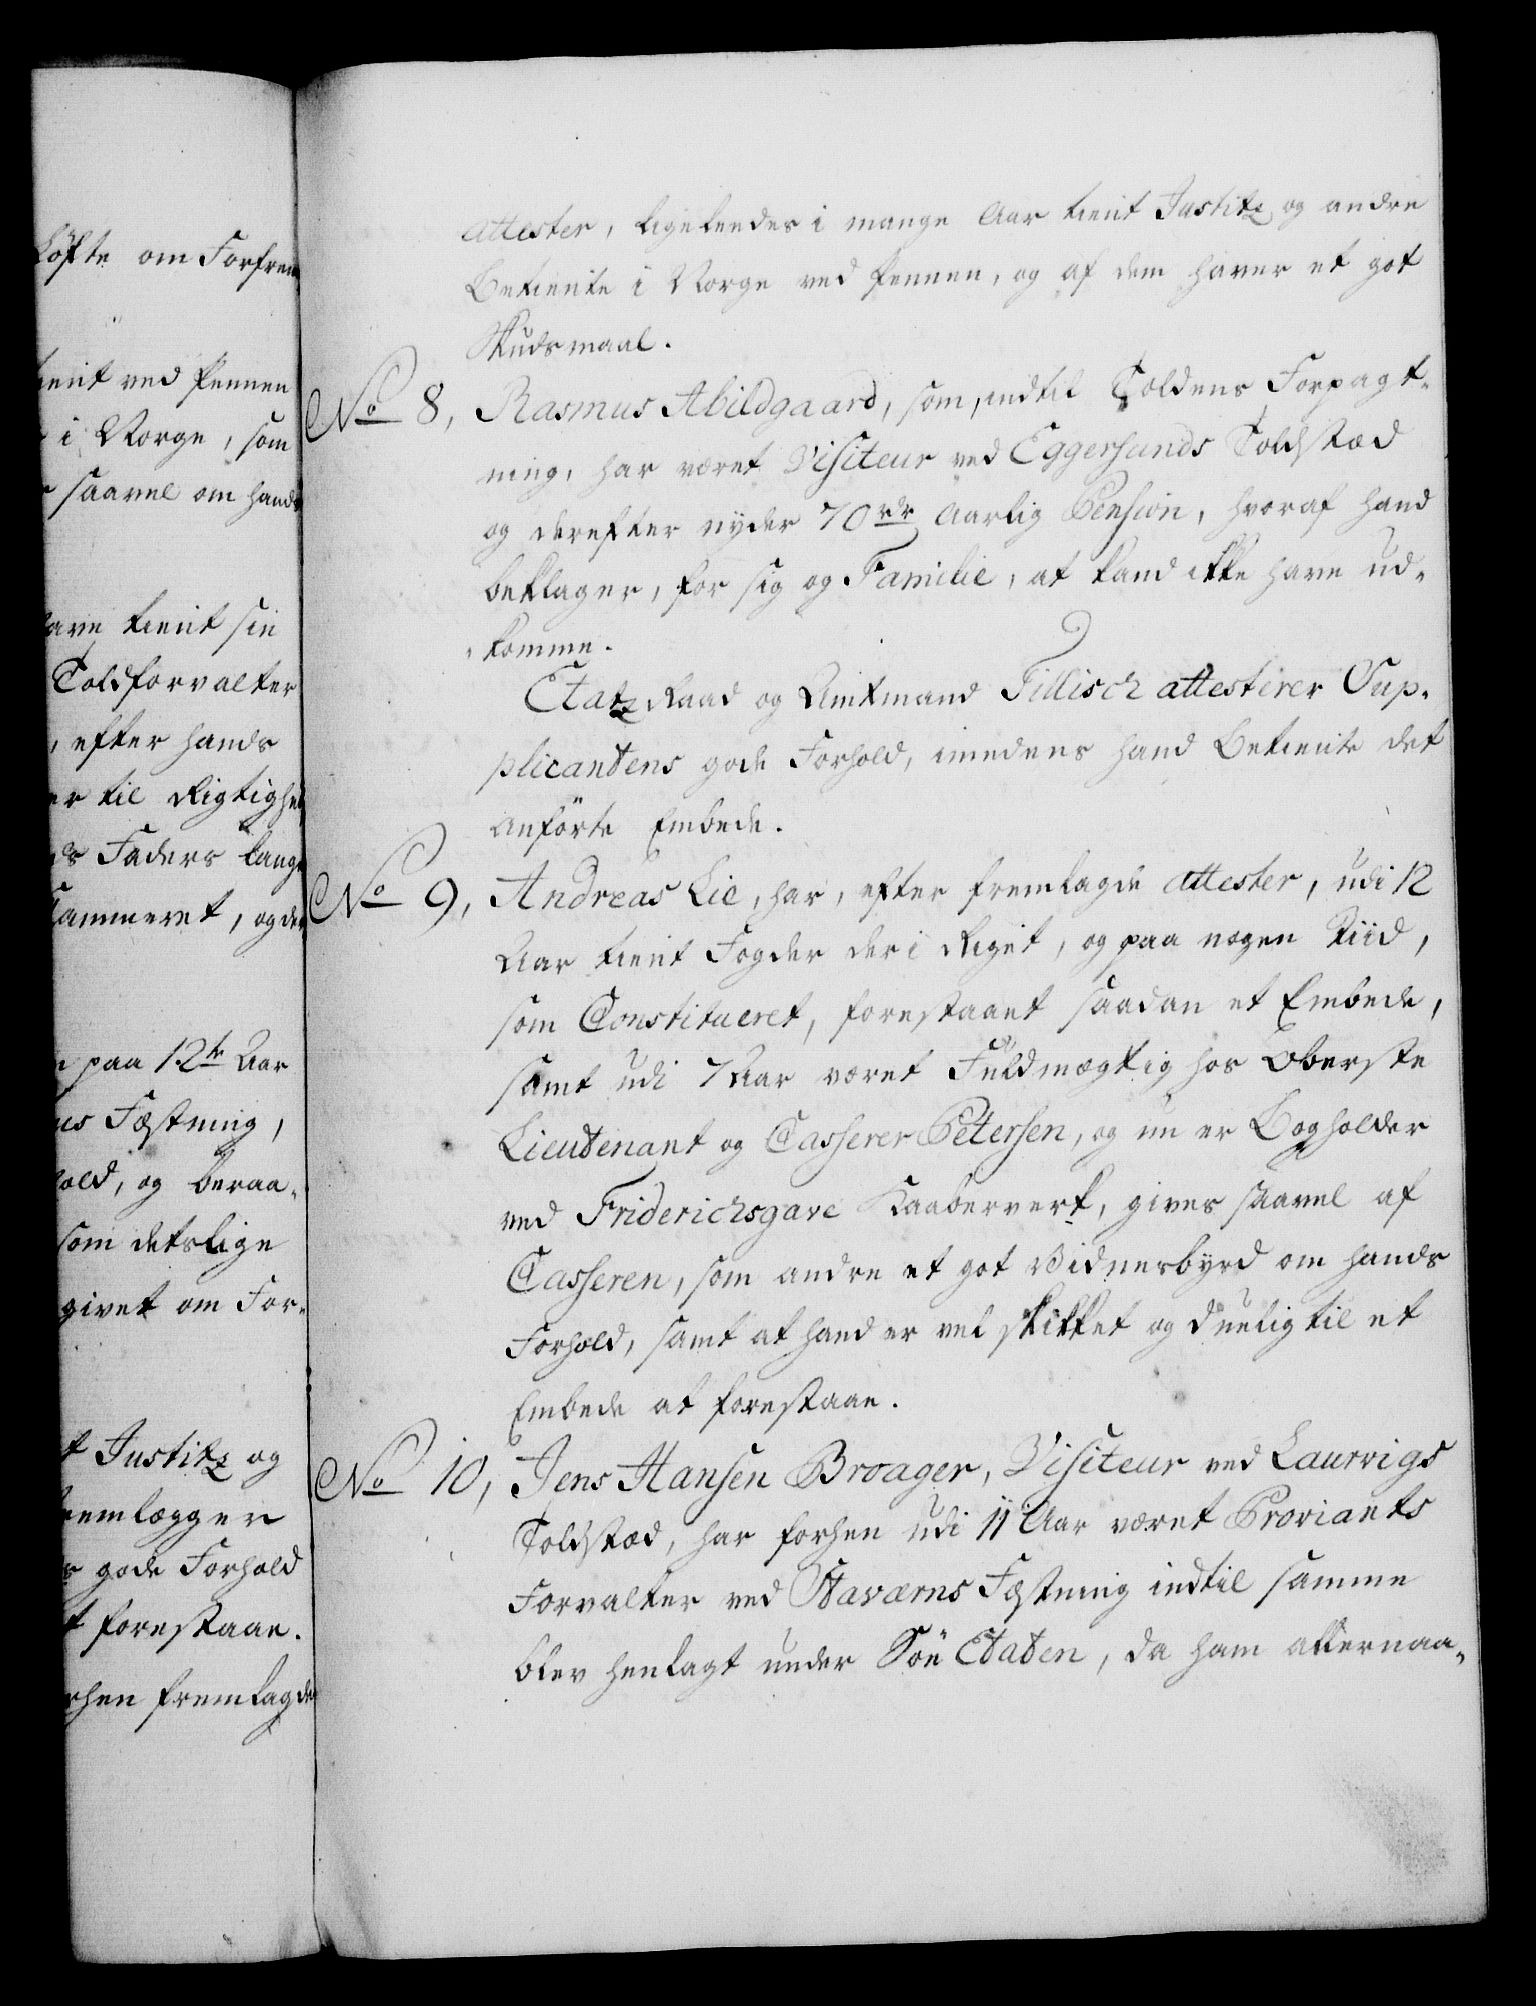 Løfte om Forfrem
tient ved Pennen
i Norge, som
saavel om hands
have tient sin
Toldforvalter
, efter hands
er til Rigtighed
ds Faders lange
Cammeret, og der
paa 12te Aar
us Fæstning,
hold, og beraa-
som detslige
givet om For-
t Justitz og
fremlægger
s gode Forhold
t forestaae.
rhen fremlagde
attester, ligeleedes i mange Aar tient Justitz og andre
Betiente i Norge ved Pennen, og af dem haver et got
Skudsmaal.
No 8, Rasmus Abildgaard, som, indtil Toldens Forpagt-
ning, har været Visiteur ved Eggersunds Toldstæd
og derefter nyder 70 rdr Aarlig Pension, hvoraf hand
beklager, for sig og Familie, at kand ikke have ud-
komme.
Etatz Raad og Amtmand Tillisch attesterer Sup-
plicantens gode Forhold, imedens hand betiente det
anførte Embede.
No 9, Andreas Lie, har, efter fremlagde attester, udi 12
Aar tient Fogder der i Riget, og paa nogen Tiid,
som Constitueret, forestaaet saadan et Embede,
samt udi 7 Aar været Fuldmægtig hos Oberste
Lieutenant og Casserer Petersen, og nu er Bogholder
ved Friderichsgave Kaaberverk, gives saavel af
Casseren, som andre et got Vidnesbyrd om hands
Forhold, samt at hand er vel skikket og duelig til et
Embede at forestaae.
No 10, Jens Hansen Broager, Visiteur ved Laurvigs
Toldstæd, har forhen udi 11 Aar været Proviants
Forvalter ved Staværns Fæstning indtil samme
blev henlagt under Søe Etaten, da ham allernaa-